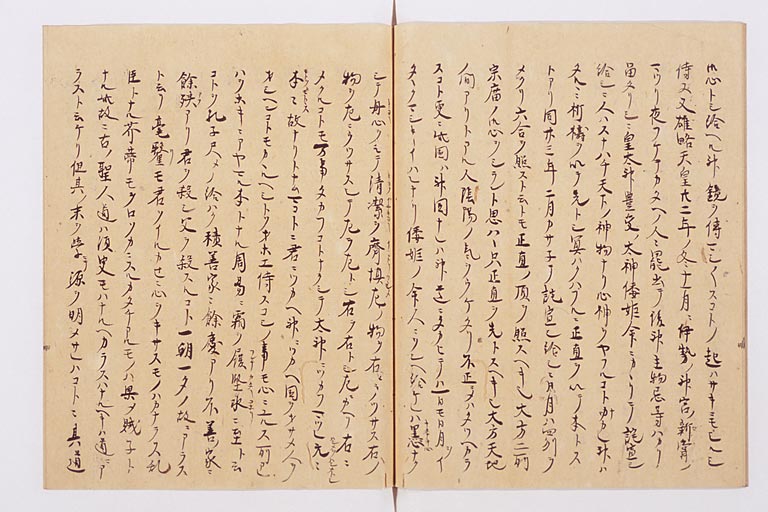 トシ給ヘル神鏡ヲ傳マシ〱スコトノ起ハサキニモシルシ
侍ヌ又雄略天皇廿二年ノ冬十一月ニ伊勢ノ神宮ノ新嘗ノ
マツリ夜フケテカタヘノ人〻罷出テ後神主物忌等ハカリ
留タリシニ皇太神豊受ノ太神倭姫ノ命ニカヽリテ託宣シ
給シニ人ハスナハチ天下ノ神物ナリ心神ヲヤフルコトナカレ神ハ
タルヽニ祈禱ヲ以テ先トシ冥ハクハフルニ正直ヲ以テ本トス
トアリ同廿三年二月カサネテ託宣シ給シニ日月ハ四州ヲ
メクリ六合ヲ照スト云トモ正直ノ頂ヲ照スヘシト大方二所
宗廟ノ御心ヲシラント思ハヽ只正直ヲ先トスヘキ也大方天地
ノ間アリトアル人陰陽ノ氣ヲウケタリ不正ニシテハタツヘカラ
スコト更ニ此國ハ神國ナレハ神道ニタカヒテハ一日モ日月ヲイ
タヽクマシキイハレナリ倭姫ノ命人ニヲシヘ給ケルハ黒心ナク
シテ丹心ヲモテ清潔ク齋慎左ノ物ヲ右ニウツサス右ノ
物ヲ左ニウツサスシテ左ヲ左トシ右ヲ右トシ左ニカヘリ右ニ
メクルコトモ万事タカフコトナクシテ太神ニツカフマツレ元ヲ
本ヲ故ナリトナムマコトニ君ニツカヘ神ニツカヘ國ヲヲサメ人ヲ
ヲシヘンコトモカヽルヘシトソオホエ侍スコシノ事モ心ニユルス所アレ
ハヲホキニアヤマル本トナル周易ニ霜ヲ履堅氷ニ至ト云
コトヲ孔子尺シテノ給ハク積善家ニ餘慶アリ不善家ニ
餘殃アリ君ヲ殺シ父ヲ殺スルコト一朝一夕ノ故ニアラス
ト云リ毫釐モ君ヲイルカセニスル心ヲキサスモノハカナラス乱
臣トナル芥帶モヲロソカニスルカタチアルモノハ果テ賊子ト
ナル此故ニ古ノ聖人道ハ須臾モハナルヘカラスハナルヘキハ道ニア
ラスト云ケリ但其ノ末ヲ學テ源ヲ明メサレハコトニ其道